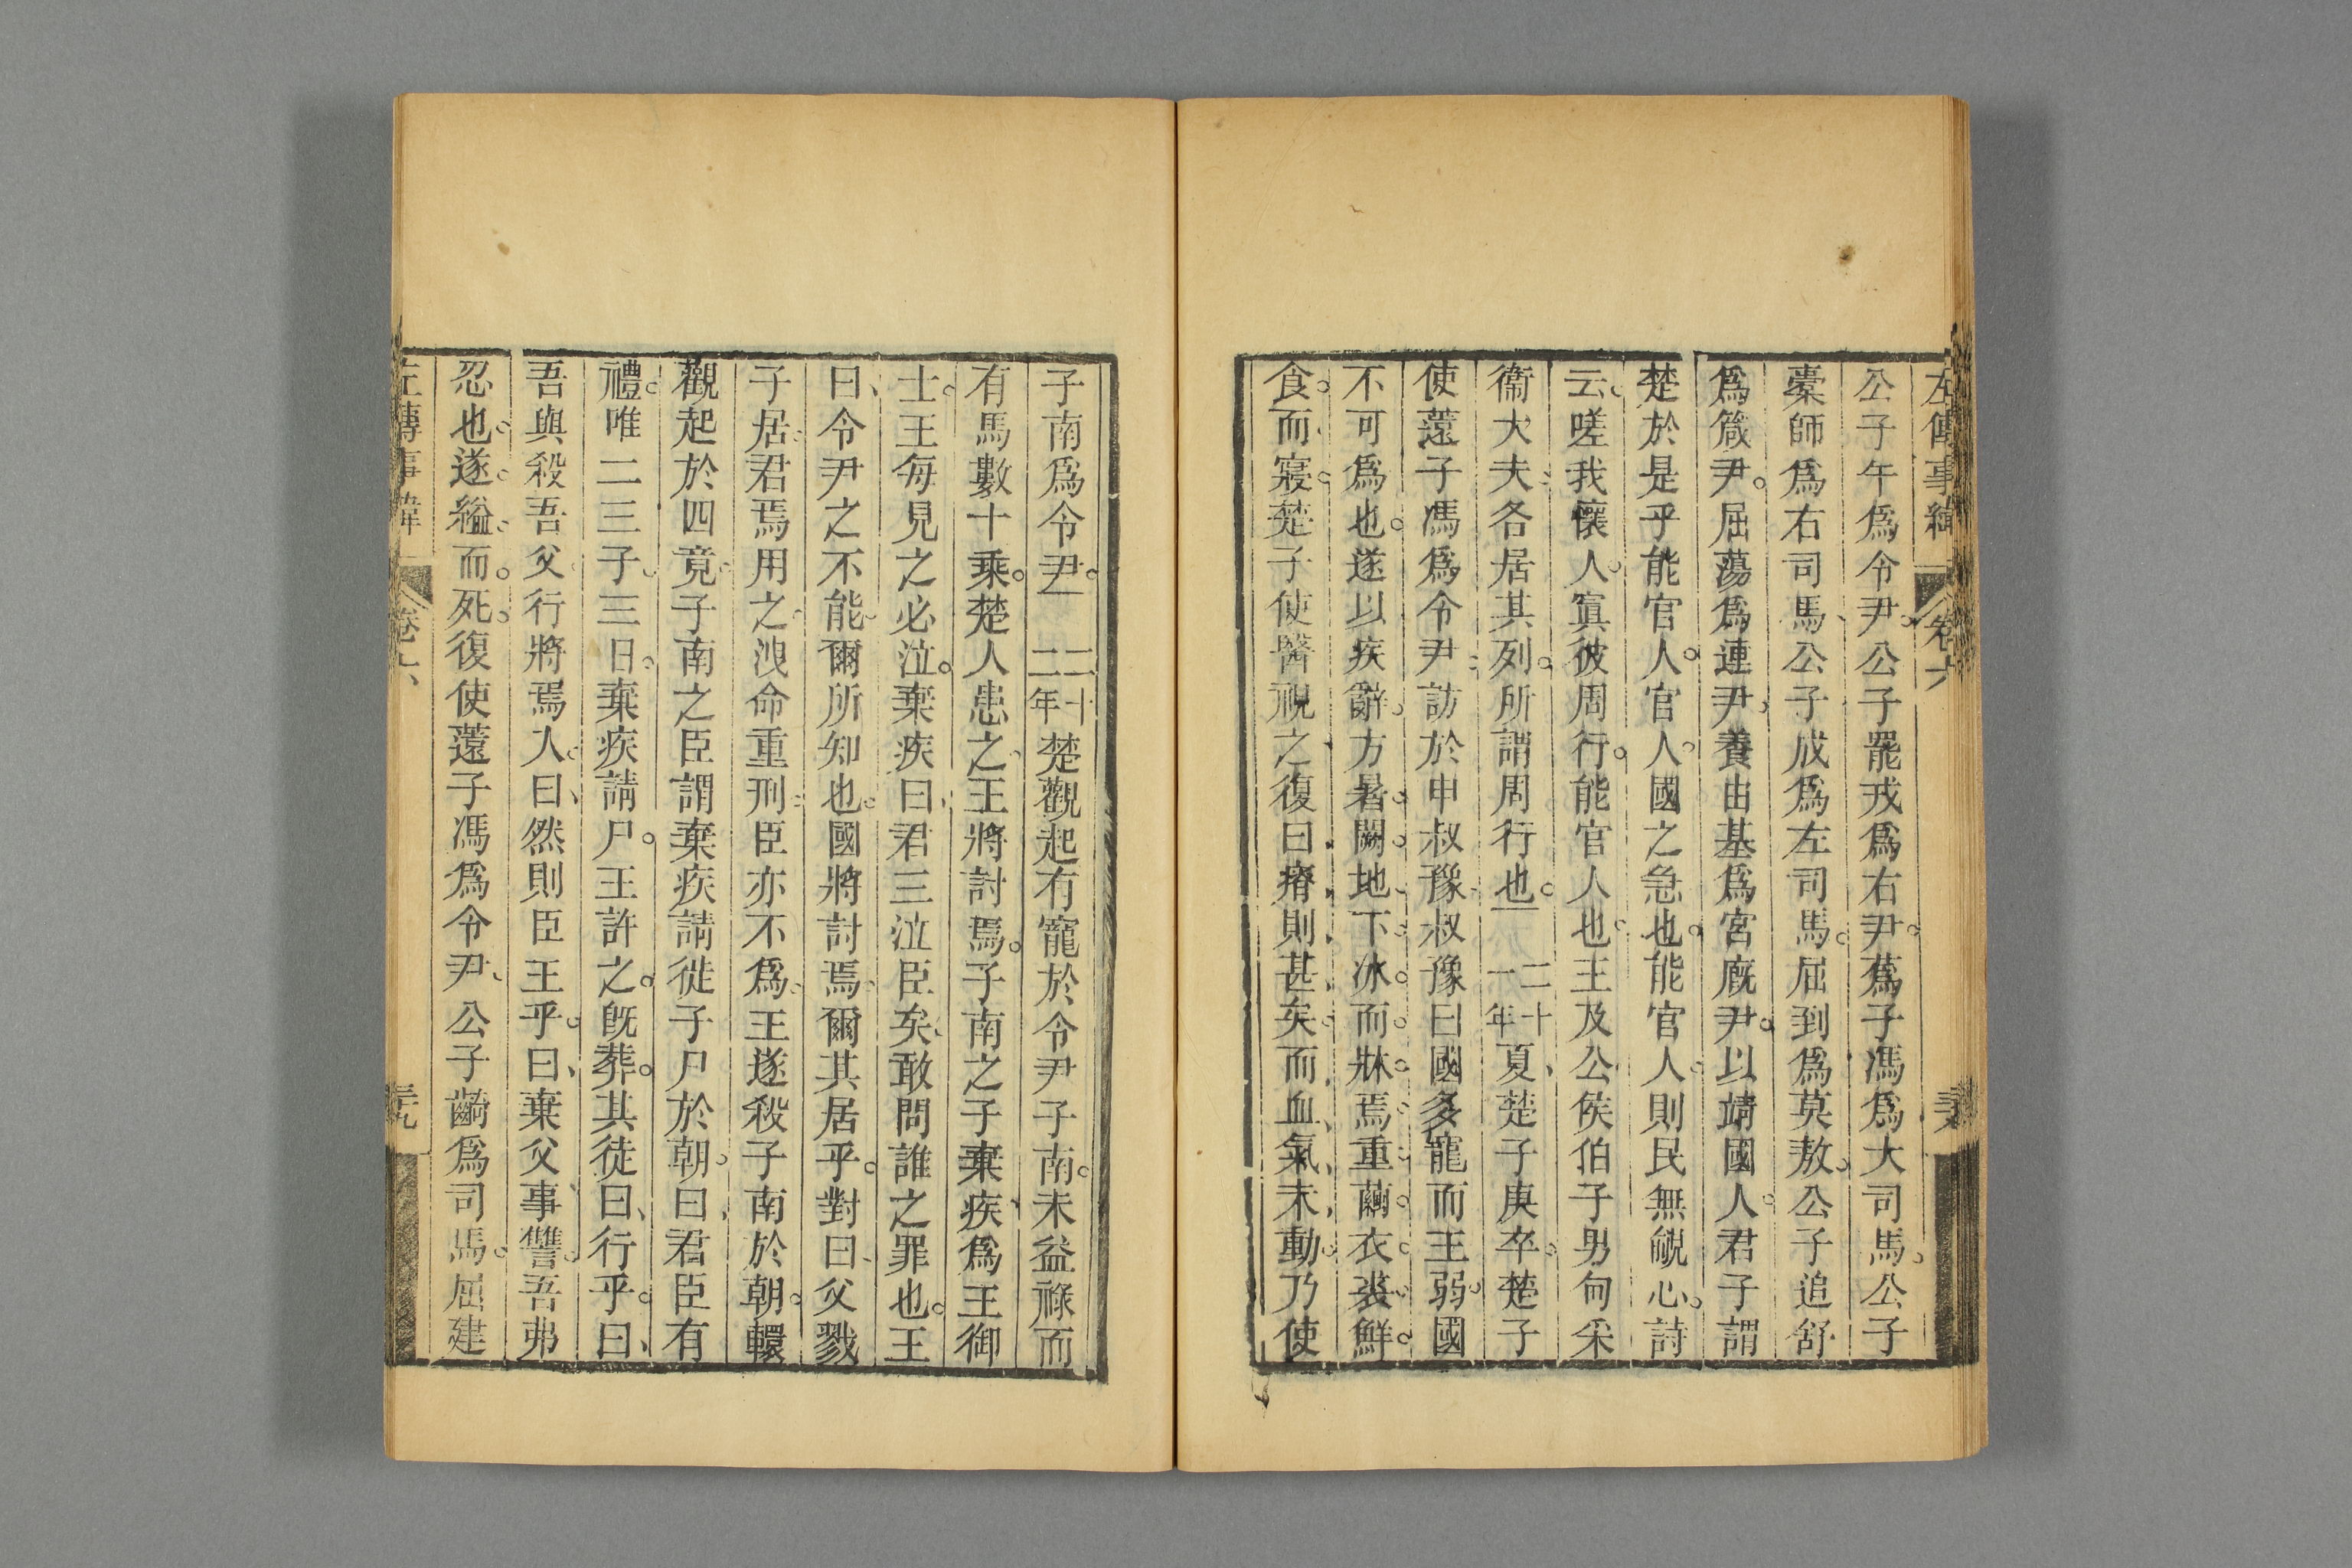 左傳事緯 卷六
公子午爲令尹公子罷戎爲右尹蔿子馮爲大司馬公子
橐師爲右司馬公子成爲左司馬屈到爲莫敖公子追舒
爲箴尹屈蕩爲連尹養由基爲宮廐尹以靖國人君子謂
楚於是乎能官人官人國之急也能官人則民無覦心詩
云嗟我懷人寘彼周行能官人也王及公侯伯子男甸采
衞大夫各居其列所謂周行也 二十一年 夏楚子庚卒楚子
使薳子馮爲令尹訪於申叔豫叔豫曰國多寵而王弱國
不可爲也遂以疾辭方暑闕地下冰而牀焉重繭衣裘鮮
食而寢楚子使醫視之復曰瘠則甚矣而血氣未動乃使
子南爲令尹 二十二年 楚觀起有寵於令尹子南未益祿而
有馬數十乘楚人患之王將討焉子南之子棄疾爲王御
士王每見之必泣棄疾曰君三泣臣矣敢問誰之罪也王
曰令尹之不能爾所知也國將討焉爾其居乎對曰父戮
子居君焉用之洩命重刑臣亦不爲王遂殺子南於朝轘
觀起於四竟子南之臣謂棄疾請徙子尸於朝曰君臣有
禮唯二三子三日棄疾請尸王許之旣葬其徒曰行乎曰
吾與殺吾父行將焉入曰然則臣王乎曰棄父事讐吾弗
忍也遂縊而死復使薳子馮爲令尹公子齮爲司馬屈建
左傳事緯 卷六 三九